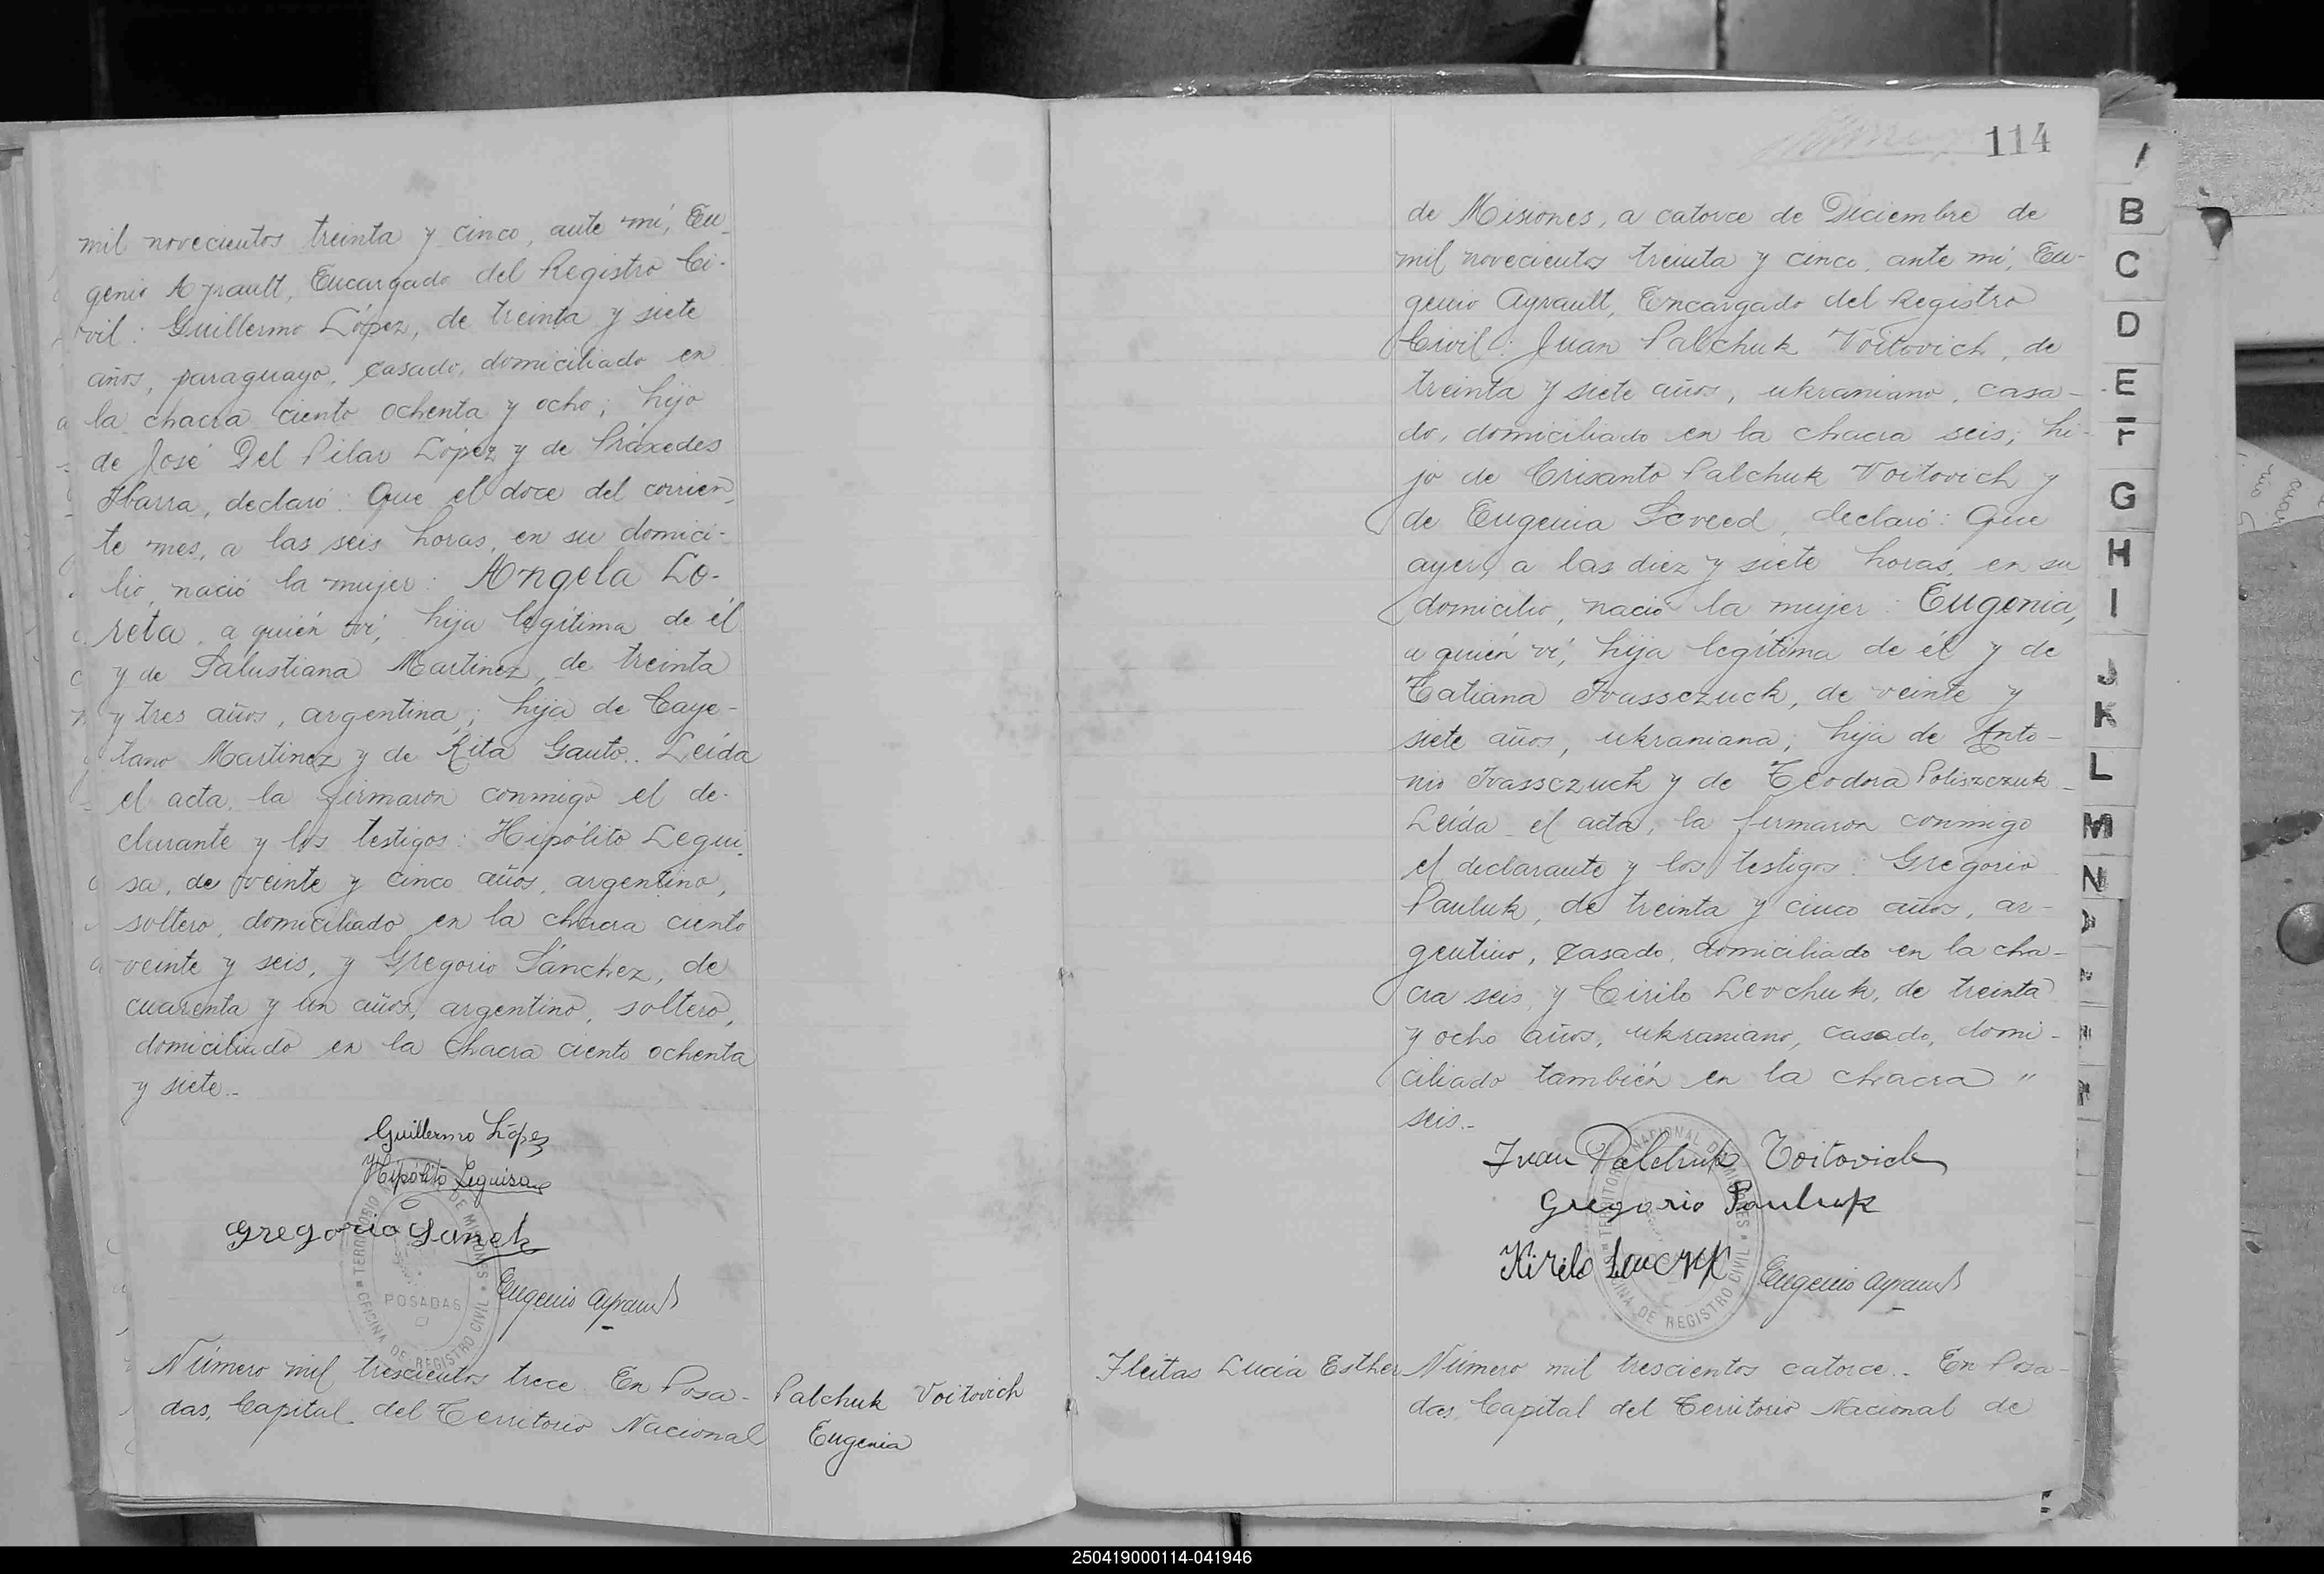 mil novecientos treinta y cinco, ante mí, Eu-
genio Ayrault, Encargado del Registro Ci-
vil: Guillermo López, de treinta y siete
años, paraguayo, casado, domiciliado en
la chacra ciento ochenta y ocho; hijo
de José Del Pilar López y de Práxedes
Ibarra, declaró: Que el doce del corrien-
te mes, a las seis horas, en su domici-
lio, nació la mujer: Angela Lo-
reta, a quién ví, hija legítima de él
y de Salustiana Martinez, de treinta
y tres años, argentina; hija de Caye-
tano Martinez y de Rita Gauto.. Leída
el acta, la firmaron conmigo el de-
clarante y los testigos: Hipólito Legui-
sa, de veinte y cinco años, argentino,
soltero, domiciliado en la chacra ciento
veinte y seis, y Gregorio Sánchez, de
cuarenta y un años, argentino, soltero,
domiciliado en la chacra ciento ochenta
y siete..
Guillermo López
Hipólito Leguisa
Gregorio Sanch
Eugenio Ayrault
TERRITORIO DE MISIONES
POSADAS
OFICINA DE REGISTRO CIVIL
Número mil trescientos trece. En Posa-
das, Capital del Territorio Nacional
Palchuk Voitovich
Eugenia
114
de Misiones, a catorce de Diciembre de
mil novecientos treinta y cinco, ante mí, Eu-
genio Ayrault, Encargado del Registro
Civil: Juan Palchuk Voitovich, de
treinta y siete años, ukraniano, casa-
do, domiciliado en la chacra seis; hi-
jo de Crisanto Palchuk Voitovich y
de Eugenia, declaró: Que
ayer, a las diez y siete horas, en su
domicilio, nació la mujer: Eugenia,
a quién ví, hija legítima de él y de
Tatiana Ivassczuck, de veinte y
siete años, ukraniana; hija de Anto-
nio Ivassczuck y de Teodora Poliszczuk..
Leída el acta, la firmaron conmigo
el declarante y los testigos: Gregorio
Pauluk, de treinta y cinco años, ar-
gentino, casado, domiciliado en la cha-
cra seis, y Cirilo Levchuk, de treinta
y ocho años, ukraniano, casado, domi-
ciliado también en la chacra "
seis..
Ivan Palchuk Voitovich
Gregorio Pauluk
Kirilo
Eugenio Ayrault
TERRITORIO NACIONAL DE MISIONES
OFICINA DE REGISTRO CIVIL
Fleitas Lucia Esther
Número mil trescientos catorce.. En Posa-
das, Capital del Territorio Nacional de
B
C
D
E
F
G
H
I
J
K
L
M
N
250419000114-041946